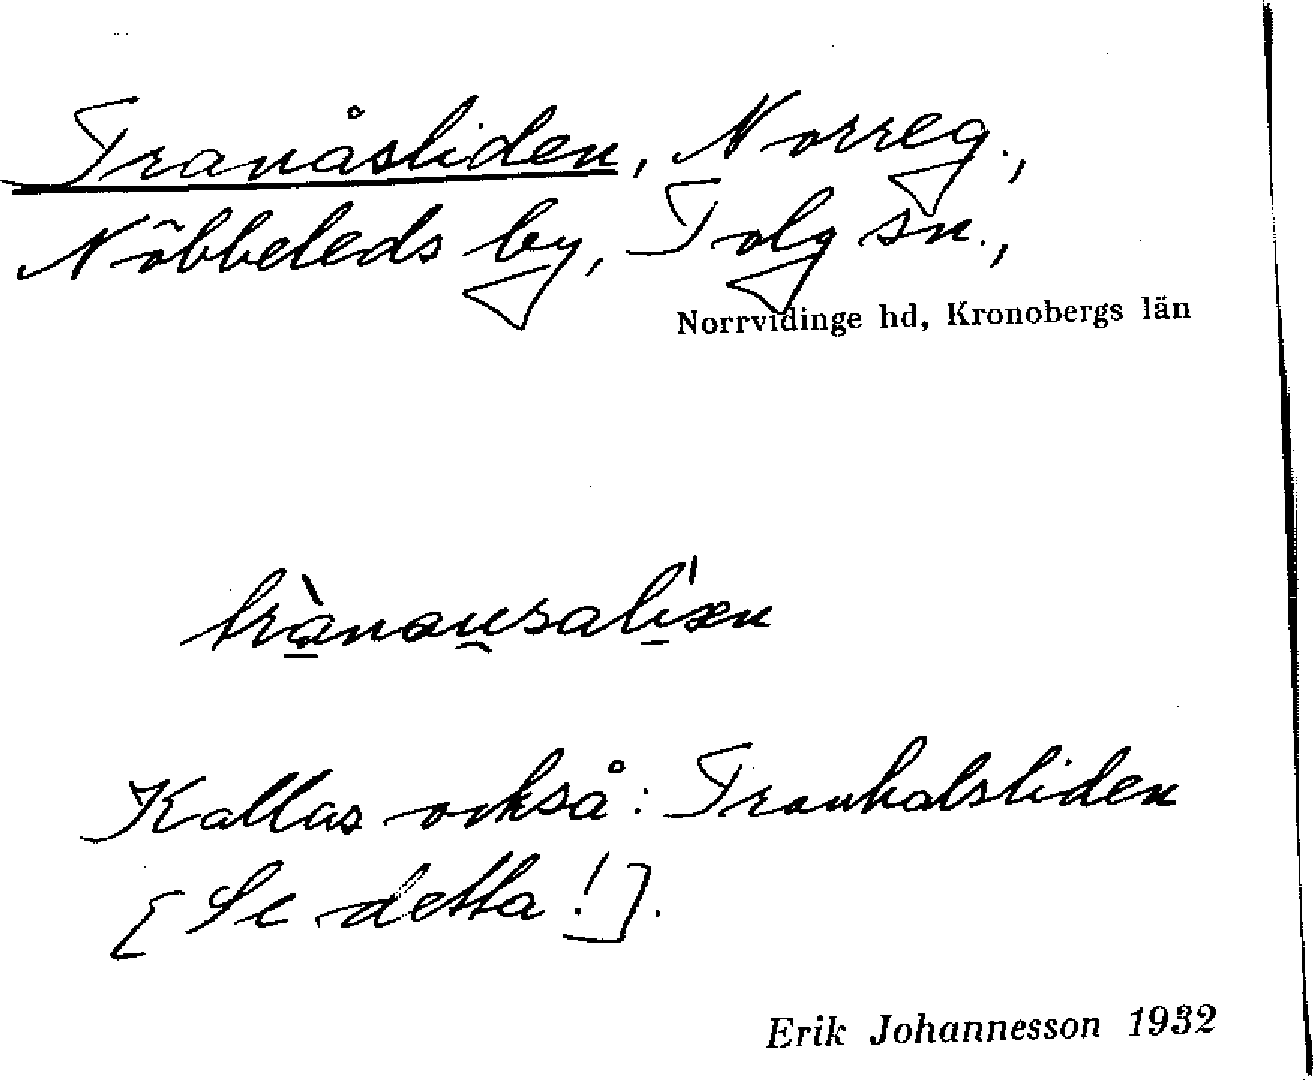 Tranåsliden, Norreg.,
Nöbbeleds by, Tolg sn.,
Norrvidinge hd, Kronobergs län
Kallas också: Tranhalsliden
[Se detta!].
Erik Johannesson 1932